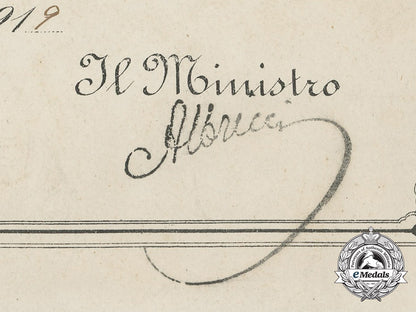 919
Il Ministro
Albricci
eMedals